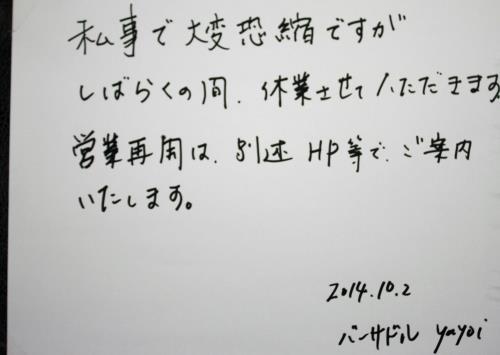 私事で大変恐縮ですが
しばらくの間、休業させていただきます
営業再開は、別述HP等で、ご案内
いたします。
2014.10.2
バーサドル yayoi